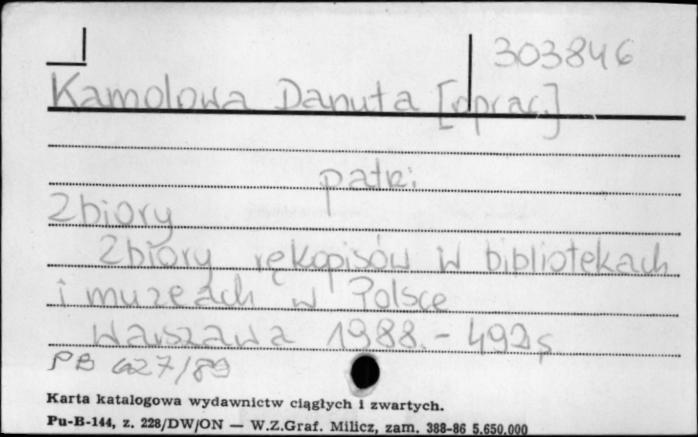 303846
Kamolowa Danuta [oprac.]
patrz:
Zbiory
Zbiory rękopisów w bibliotekach
i muzeach w Polsce
Warszawa 1988. - 492 s
PB 627/89
Karta katalogowa wydawnictw ciągłych i zwartych.
Pu-B-144, z. 228/DW/ON — W.Z.Graf. Milicz, zam. 388-86 5.650.000